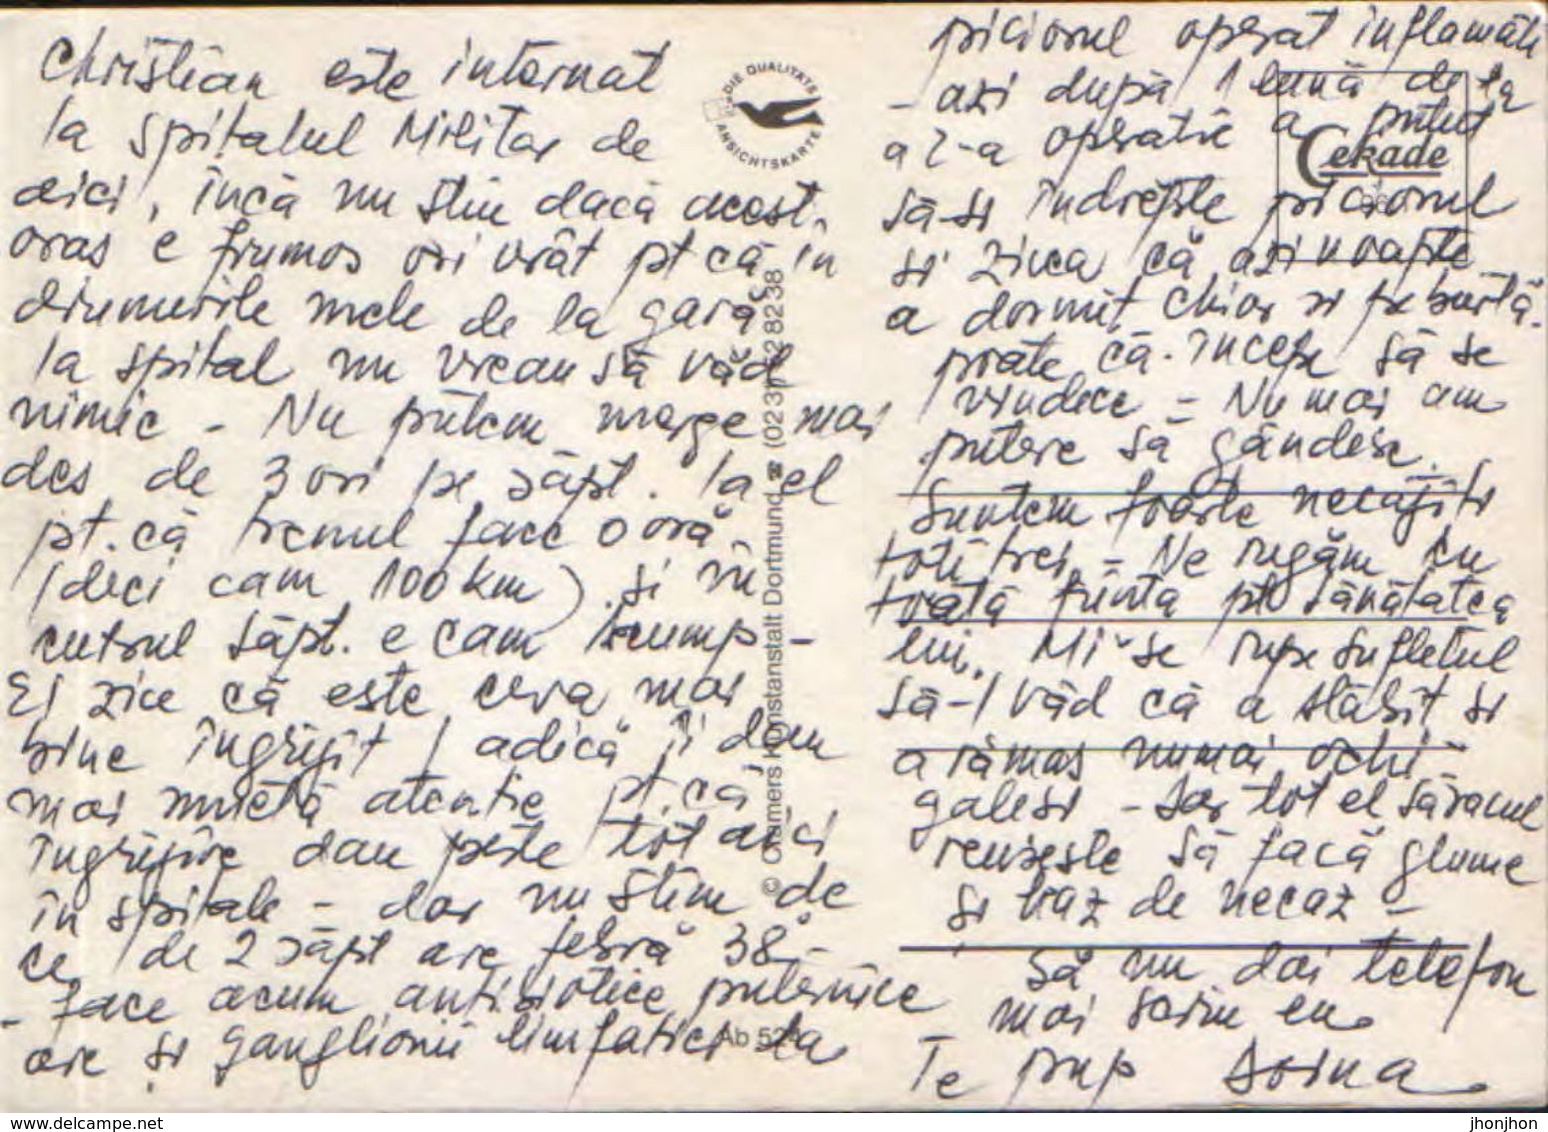 Christian este internat
la spitalul Militar de
aici, încă nu știu dacă acest
oraș e frumos ori urât pt că în
drumurile mele de la gară
la spital nu vreau să văd
nimic - Nu putem merge mai
des de 3 ori pe săpt. la el
pt. că trenul face o oră
(deci cam 100 km) și în
cursul săpt. e cam scump -
El zice că este ceva mai
bine îngrijit / adică îi dau
mai multă atenție pt. că
îngrijire dau peste tot aici
în spitale - dar nu știm de
ce de 2 săpt are febră 38 -
- face acum antibiotice puternice
are și ganglionii limfatici la
piciorul operat inflamați
- azi după 1 lună de la
a 2-a operație a putut
să-și îndrepte piciorul
și zicea că azi noapte
a dormit chiar și pe burtă.
poate că începe să se
vindece - Nu mai am
putere să gândesc.
Suntem foarte necăjiți
toți trei - Ne rugăm cu
toată ființa pt sănătatea
lui. Mi se rupe sufletul
să-l văd că a slăbit și
a rămas numai ochi
galeși - dar tot el săracul
reușește să facă glume
și haz de necaz -
Să nu dai telefon
mai scriu eu.
Te pup Dorina
DIE QUALITÄTS
ANSICHTSKARTE
Cekade
© Cramers Kunstanstalt Dortmund ☎ (0231) 528238
Ab 52
delcampe.net
jhonjhon